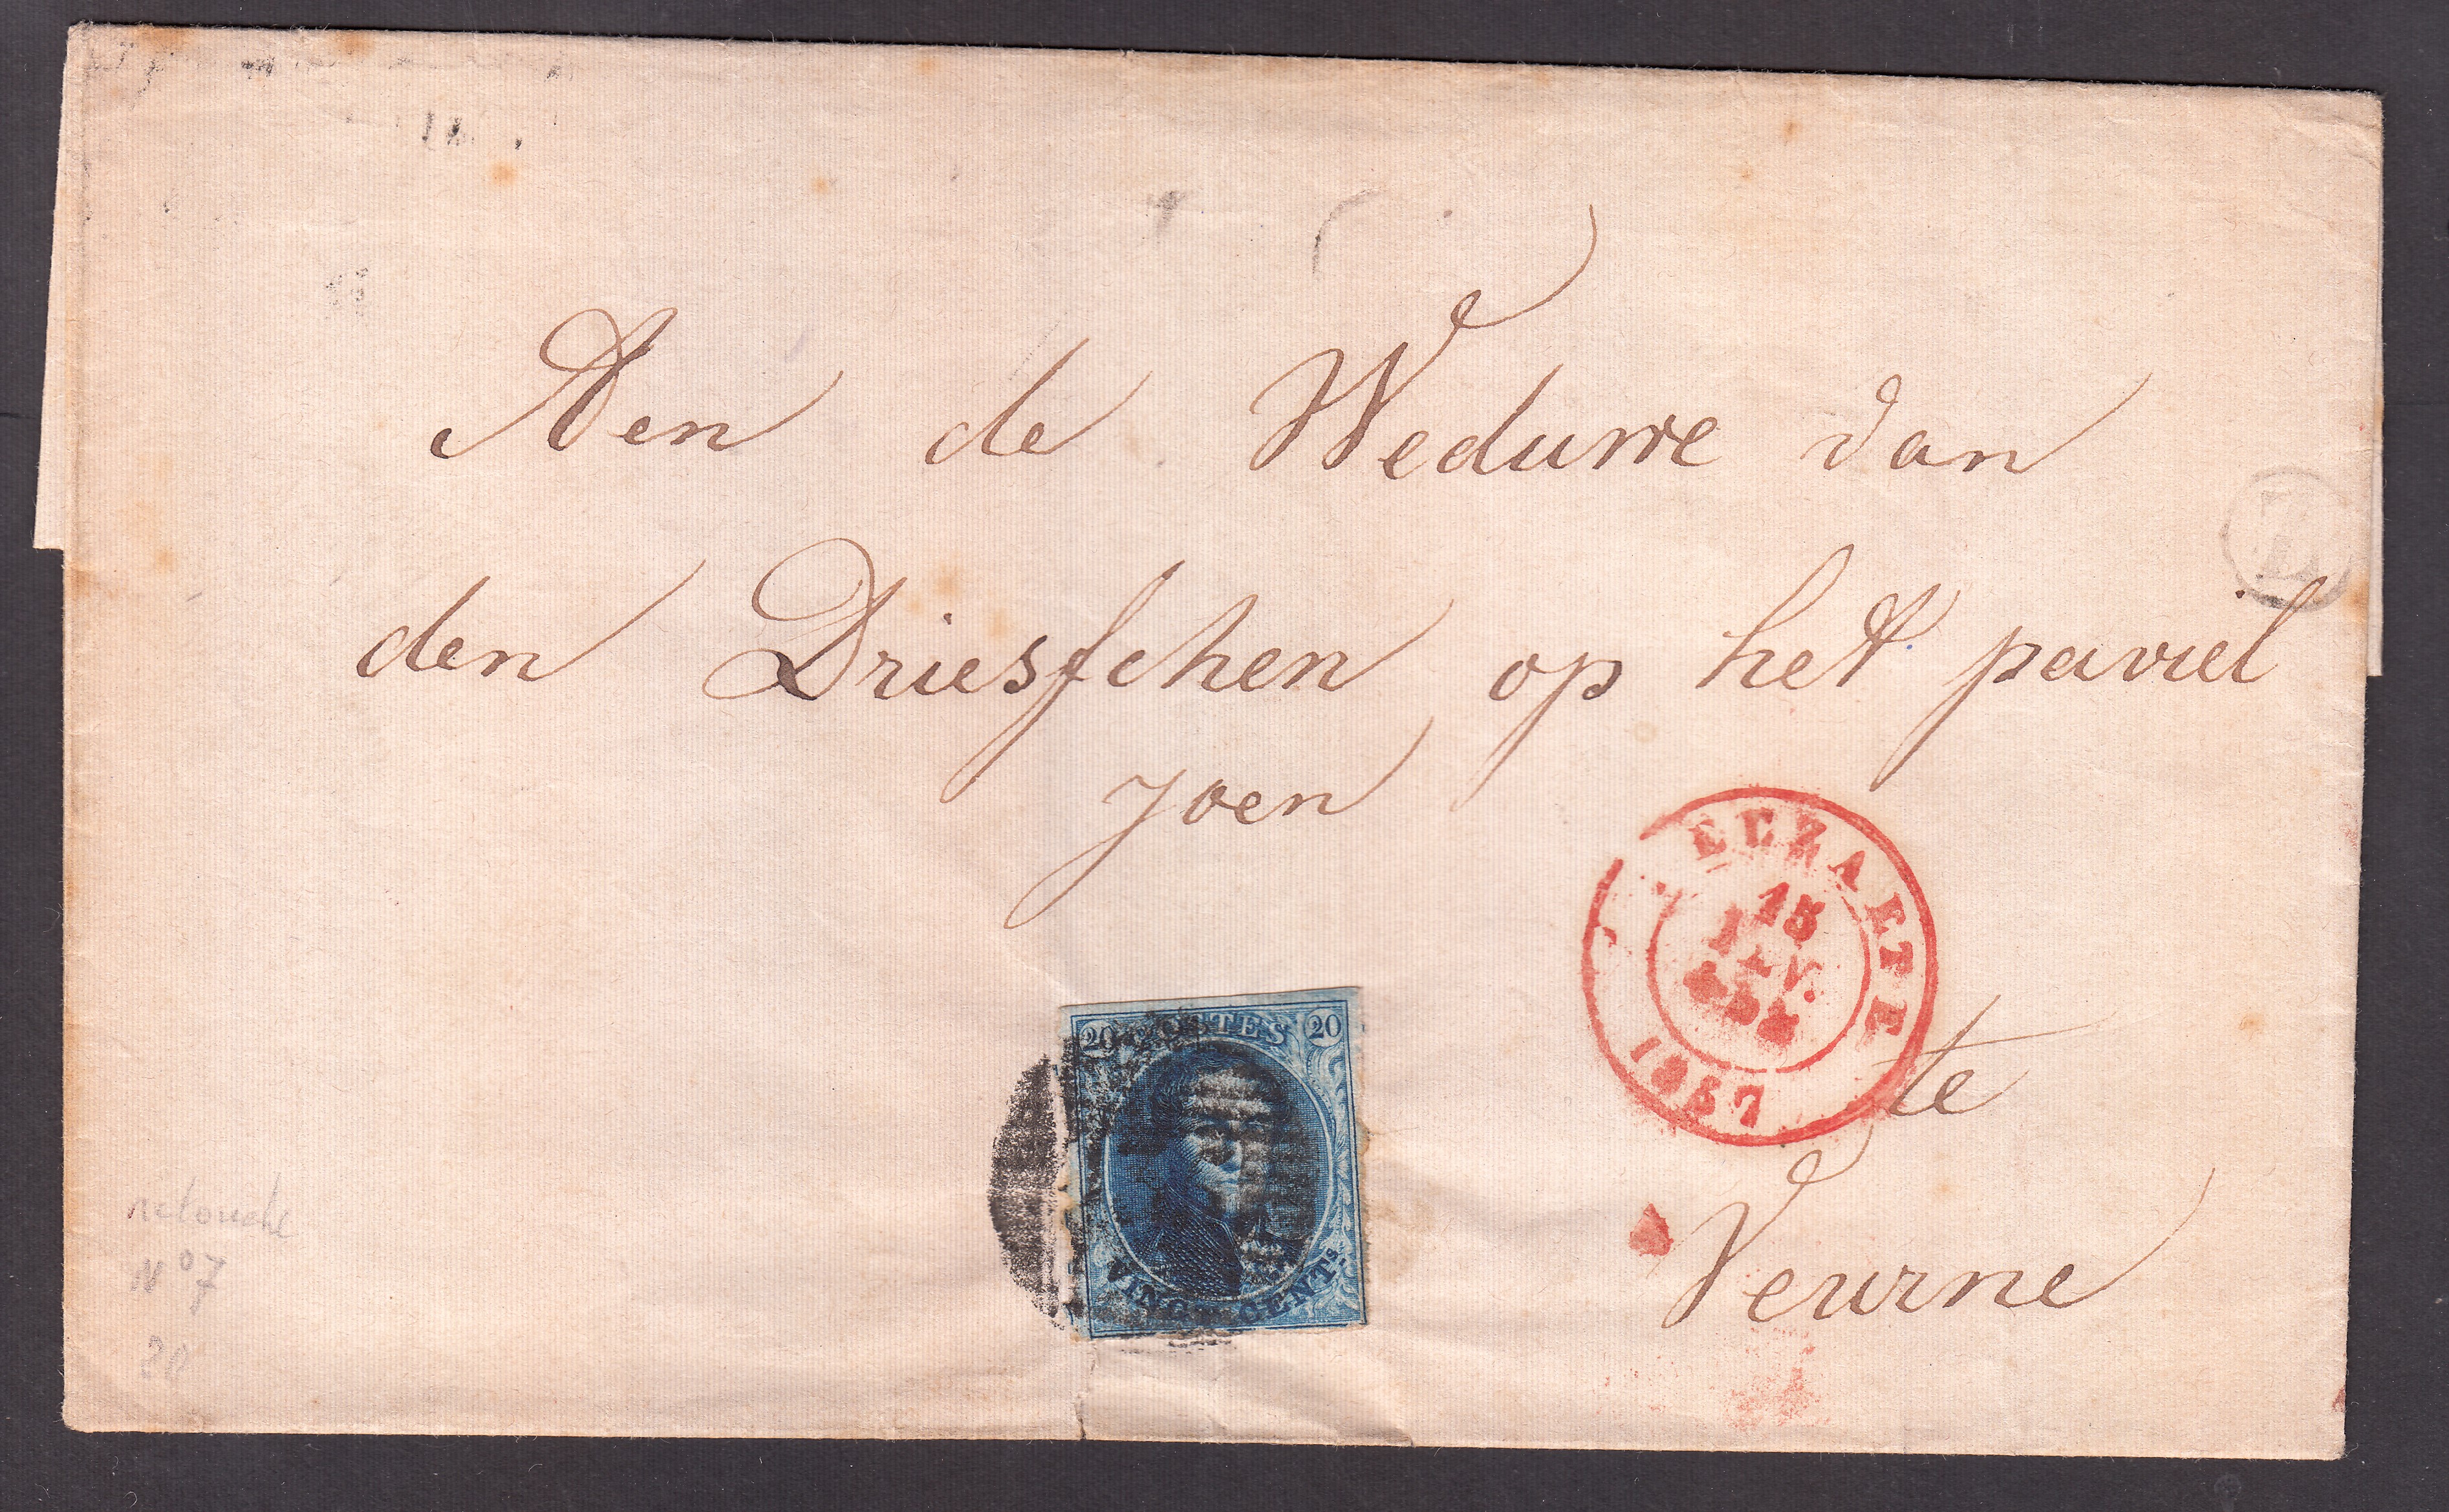 Aen de Weduwe van
den Driesschen op het paviel
joen
te
Veurne
15
1857
20 POSTES 20
VINGT CENTS
retouche
N° 7
20